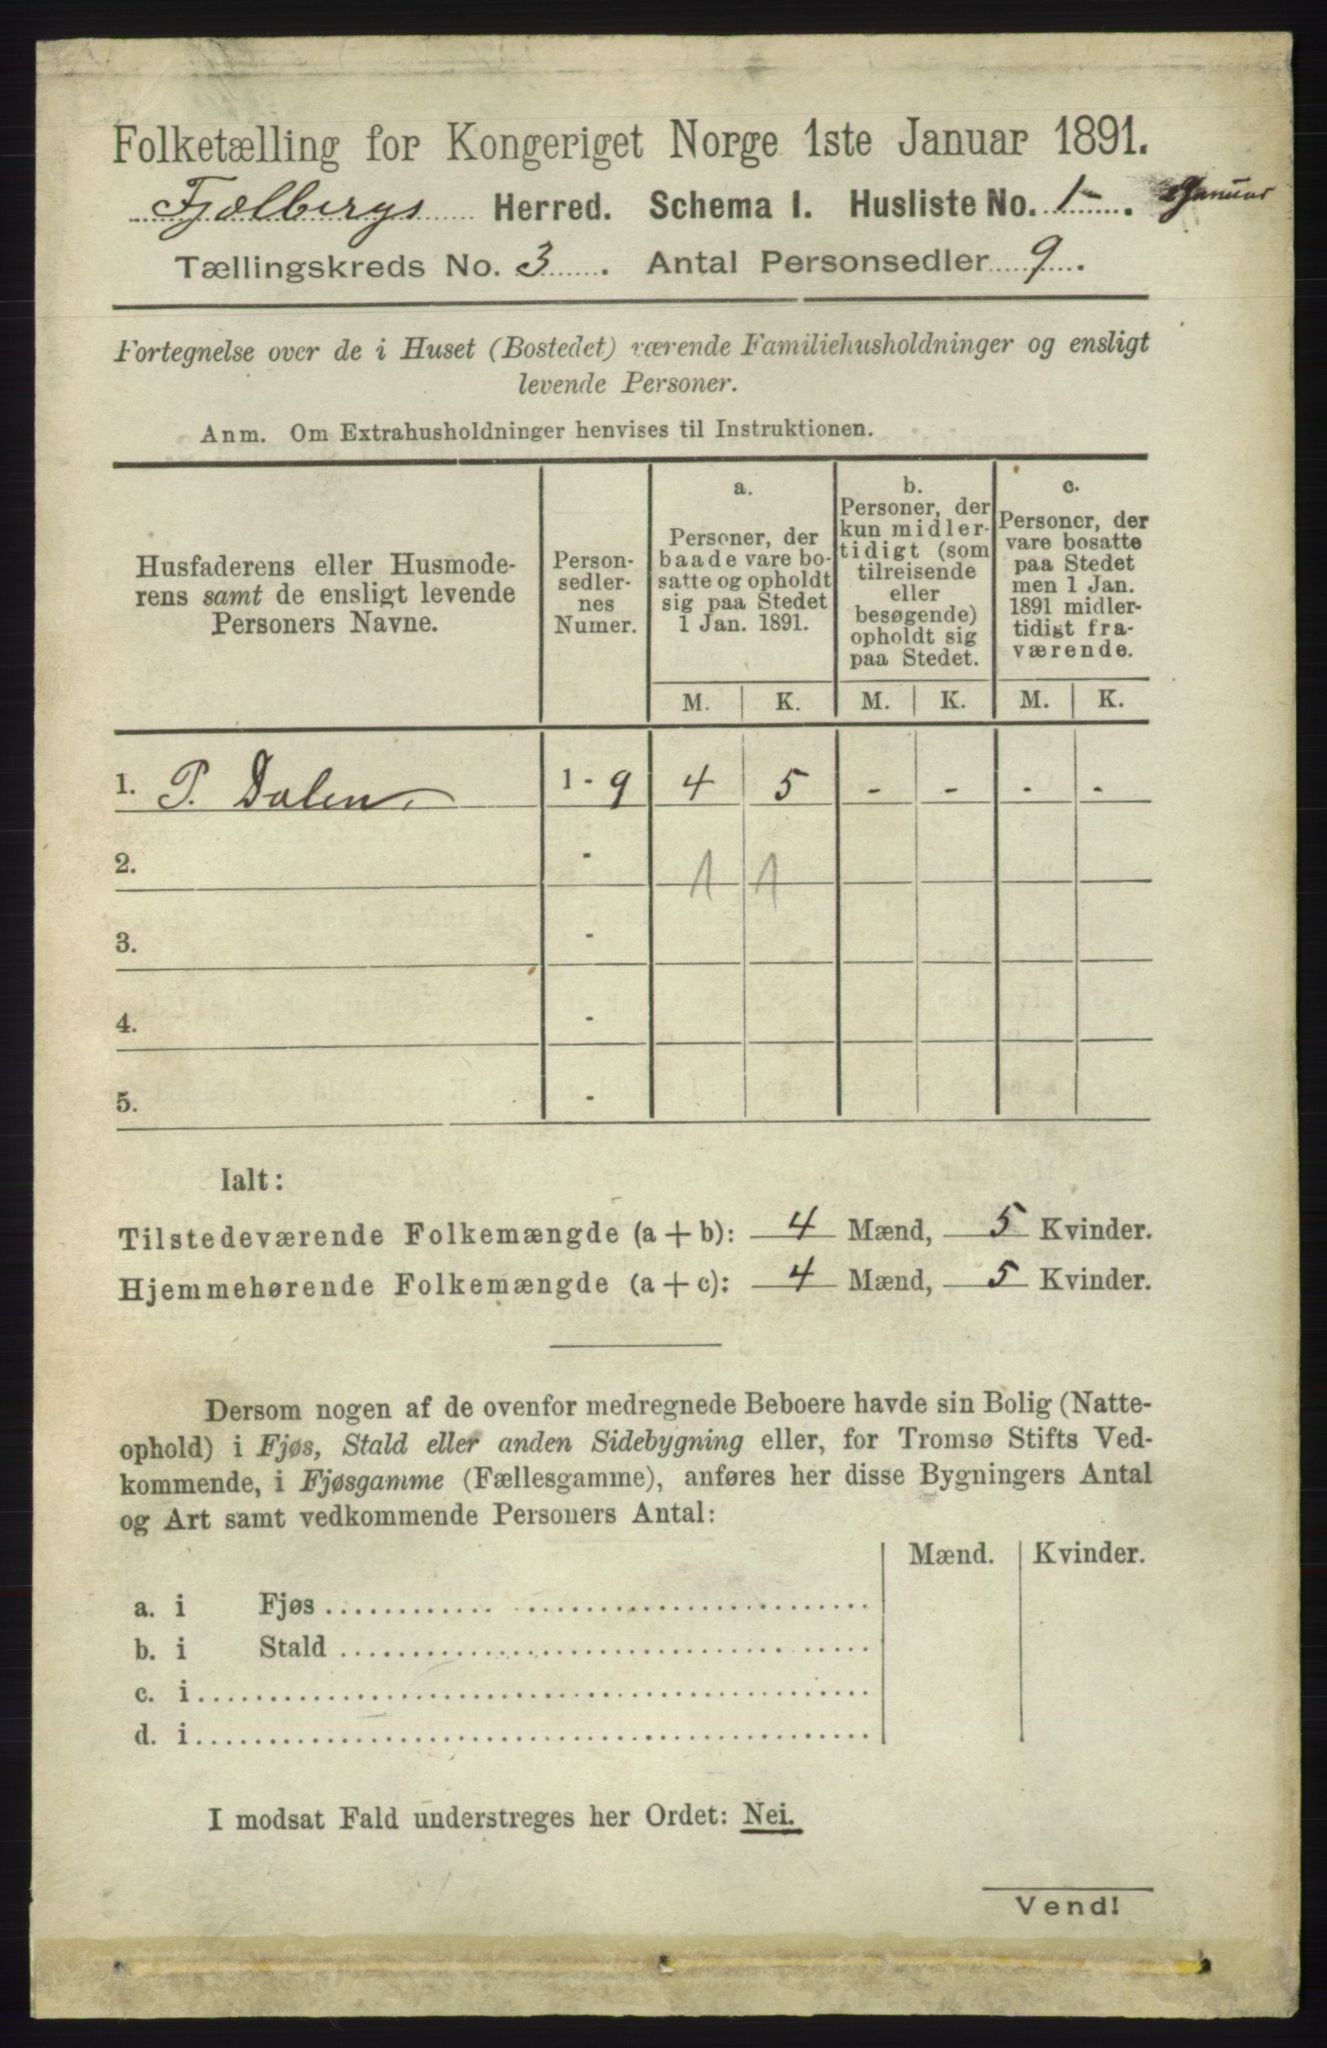 Folketælling for Kongeriget Norge 1ste Januar 1891.
Fjelbergs Herred. Schema I. Husliste No. 1 Januar
Tællingskreds No. 3. Antal Personsedler 9.
Fortegnelse over de i Huset (Bostedet) værende Familiehusholdninger og ensligt
levende Personer.
Anm. Om Extrahusholdninger henvises til Instruktionen.
Husfaderens eller Husmode-
rens samt de ensligt levende
Personers Navne.
Person-
sedler-
nes
Numer.
a.
Personer, der
baade vare bo-
satte og opholdt
sig paa Stedet
1 Jan. 1891.
b.
Personer, der
kun midler-
tidigt (som
tilreisende
eller
besøgende)
opholdt sig
paa Stedet.
c.
Personer, der
vare bosatte
paa Stedet
men 1 Jan.
1891 midler-
tidigt fra-
værende.
M. K. M. K. M. K.
1. P. Dalen 1 - 9 4 5 - - - -
2. - 1 1
3. -
4. -
5. -
Ialt:
Tilstedeværende Folkemængde (a + b): 4 Mænd, 5 Kvinder.
Hjemmehørende Folkemængde (a + c): 4 Mænd, 5 Kvinder.
Dersom nogen af de ovenfor medregnede Beboere havde sin Bolig (Natte-
ophold) i Fjøs, Stald eller anden Sidebygning eller, for Tromsø Stifts Ved-
kommende, i Fjøsgamme (Fællesgamme), anføres her disse Bygningers Antal
og Art samt vedkommende Personers Antal:
Mænd. Kvinder.
a. i Fjøs
b. i Stald
c. i
d. i
I modsat Fald understreges her Ordet: Nei.
Vend!